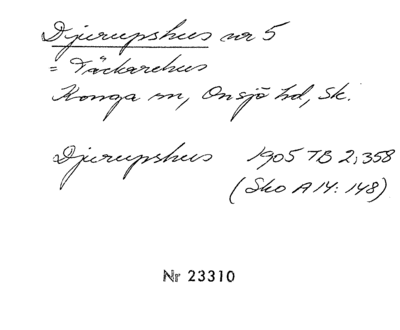 Djurupshus nr 5
= Täckarehus
Konga sn, Onsjö hd, Sk.
Djurupshus 1905 TB 2:358
(Sko A14: 148)
Nr 23310